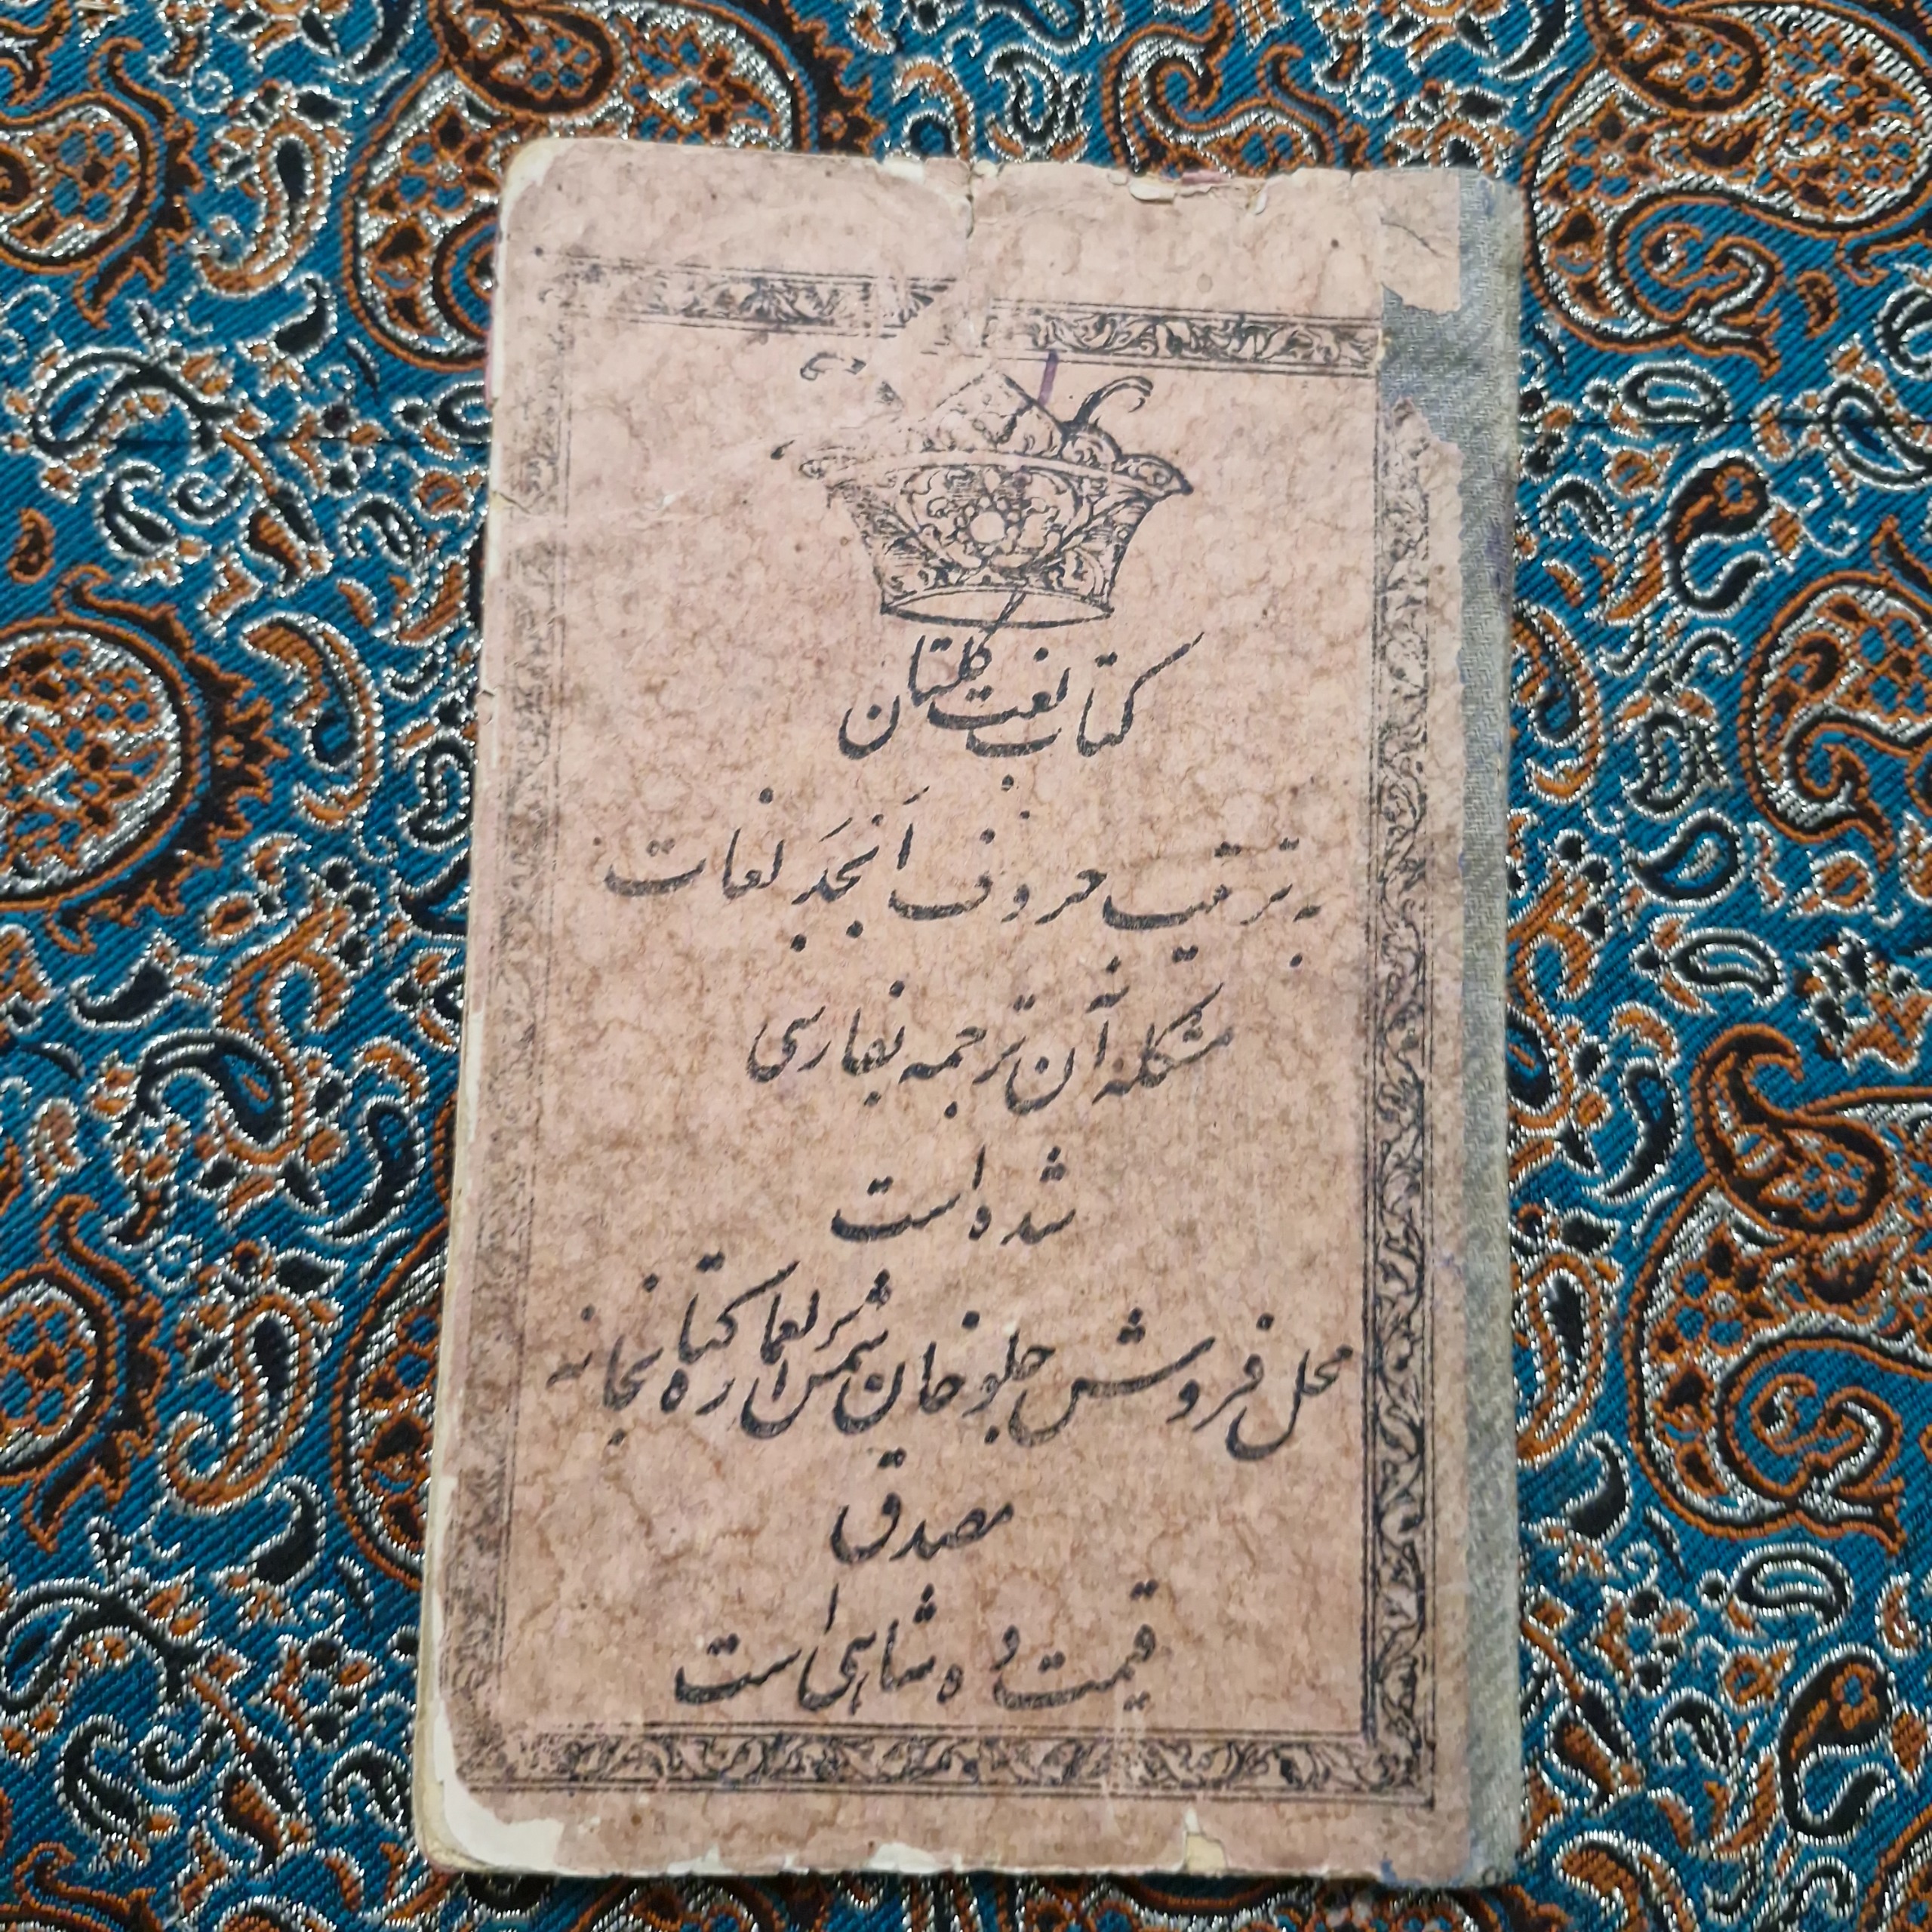 کتاب لغت گلستان
به ترتیب حروف اَبجَد لغات
مشکله آن ترجمه بفارسی
شده است
محل فروش جلوخان شمس العماره کتابخانه
مصدق
قیمت ده شاهی است